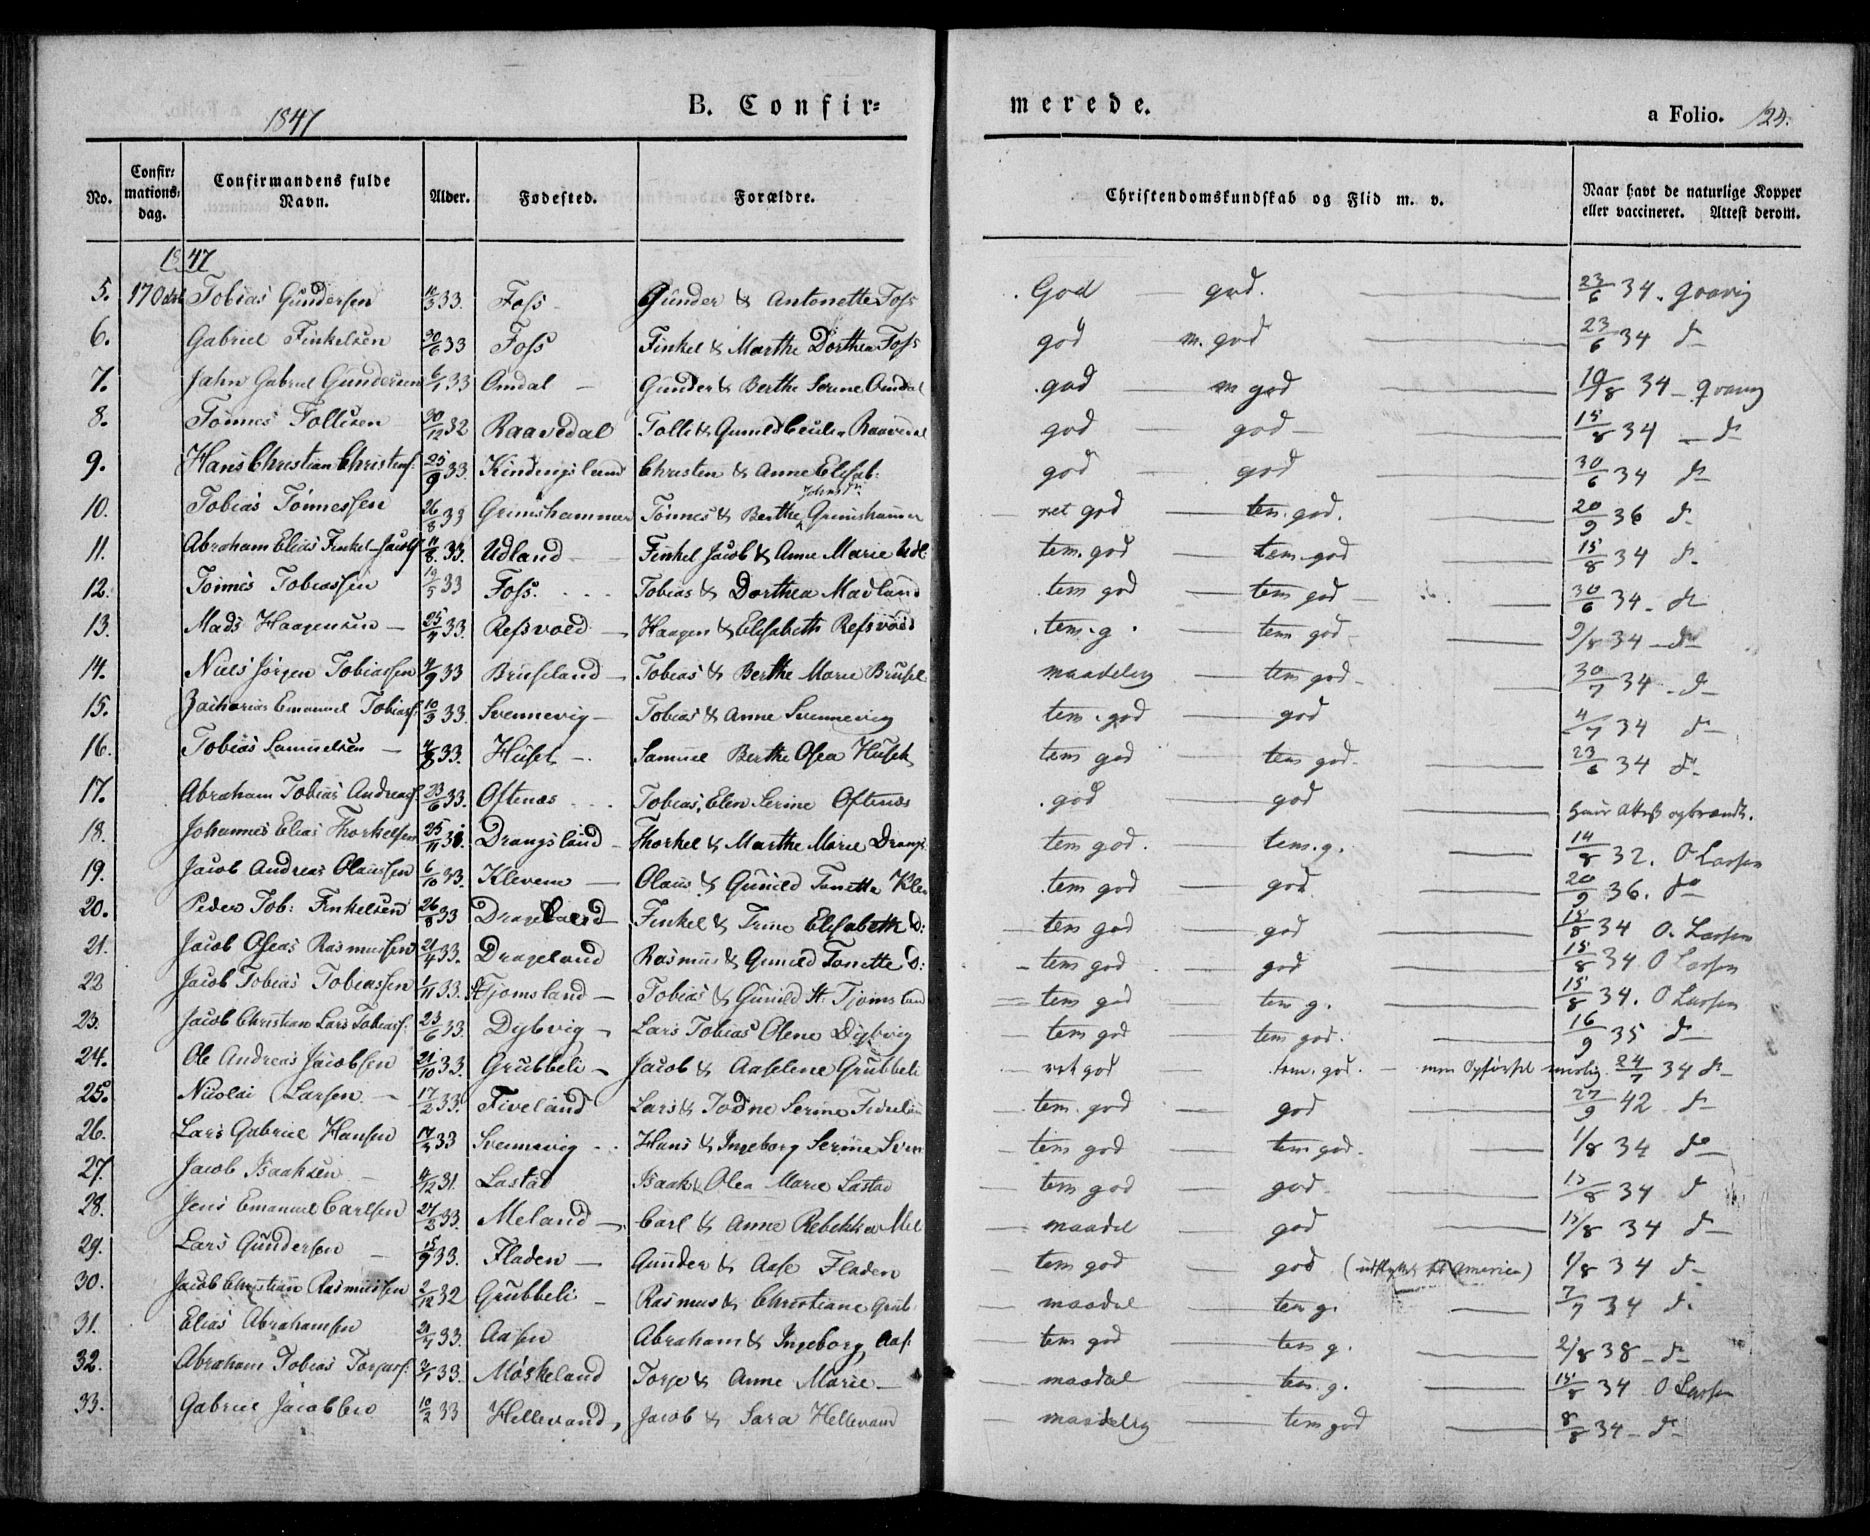 1847 B. Confir= merede. a Folio. 123.
No. Confir=mations=dag. Confirmandens fulde Navn. Alder. Fødested. Forældre. Christendomskundskab og Flid m. v. Naar havt de naturlige Kopper eller vaccineret. Attest derom.
1847
5. 17 Oct Tobias Gundersen 33. Foss Gunder & Antonette Foss God — god. — 23/6 34.
6. Gabriel Finkelsen 33 Foss Finkel & Marthe Dorthea Foss god m. god — 23/6 34 do
7. Jahn Gabriel Gundersen 6/1 33 Omdal — Gunder & Berthe Serine Omdal god — m god — 19/8 34
8. Tønnes Tollisen 30/12 32 Raavedal Tolli & Gunild Raavedal god — god — 15/8 34 — do
9. Hans Christian Christens: 25/9 33. Kindingsland Christen & Anne Elisab: god — god — 30/6 34 do
10. Tobias Tønnessen 26/3 33 Grimshammer Tønnes & Berthe Johns Dr Grimshammer — ret god — tem. god. — 20/9 36 do
11. Abraham Elias Finkel Jacobs: 11/8 33. Udland — Finkel Jacob & Anne Marie Udl: tem. god — tem. god — 15/8 34 do
12. Tønnes Tobiassen 33 Foss. Tobias & Dorthea Mavland tem god — tem god — 30/6 34. do
13. Mads Haagensen — 33. Refsvoed — Haagen & Elisabeth Refsvoed tem. g. — tem god — 9/8 34 — do
14. Niels Jørgen Tobiassen 4/9 33 Bruseland — Tobias & Berthe Marie Brusel maadelig — tem god — 30/7 34 — do
15. Zacharias Emanuel Tobiass: 10/3 33. Svennevig — Tobias & Anne Svennevig tem. god — god — 4/7 34 do
16. Tobias Samuelsen — 4/8 33. Huset — Samuel Berthe Osea Huset tem god — tem god — 23/6 34 do
17. Abraham Tobias Andreas: 23/6 33. Oftenæs Tobias, Elen Serine Oftenæs god — god — opbrændt.
18. Johannes Elias Thorkelsen 25/11 Drangsland — Thorkel & Marthe Marie Drangs: tem god. — tem. g. — 14/8 32. O Larsen
19. Jacob Andreas Olaussen 6/10 33. Klevene — Olaus & Gunild Tonette Klev tem god — god — 20/9 36. do
20. Peder Tob: Finkelsen 26/8 33 Drageland — Finkel & Trine Elisabeth D: — tem god — god — 15/8 34 O. Larsen
21. Jacob Oseas Rasmussen 21/4 33. Drageland Rasmus & Gunild Tonette D: — tem god — god — 15/8 34. O Larsen
22 Jacob Tobias Tobiassen 1/11 33. Tjomsland — Tobias & Gunild M: Tjomsland — tem god — tem g. — 15/8 34. O Larsen
23. Jacob Christian Lars Tobiass: 23/6 33. Dybvig — Lars Tobias Olene Dybvig — tem god — tem god. — 16/9 35 do
24. Ole Andreas Jacobsen 21/10 33. Grubbeli — Jacob & Aaselene Grubbeli — ret god — tem. god. — men Opførsel urolig. 24/7 34 do
25. Nicolai Larsen — 17/2 33. Fiveland Lars & Todne Serine Fivelan — tem. god — god — 27/9 42. do
26. Lars Gabriel Hansen 33 Svennevig — Hans & Ingeborg Serine Sven — tem god — tem god. — 1/8 34 do
27. Jacob Isaaksen — 4/12 31. Lastad Isaak & Olea Marie Lastad — tem god — god — 15/8 34 do
28. Jens Emanuel Carlsen 27/3 33. Meland — Carl & Anne Rebekka Mel — maadel — god — 15/8 34 do
29. Lars Gundersen — 15/9 33. Fladen — Gunder & Aase Fladen — tem god — god (udflyttet til America) 1/8 34 do
30. Jacob Christian Rasmussen 2/12 32 Grubbeli — Rasmus & Christiane Grub: — maadel — tem g. — 7/7 34 do
31. Elias Abrahamsen 33. Aasen Abraham & Ingeborg Aas: — tem god — tem g. — 2/8 38 — do
32. Abraham Tobias Torjuss: 33. Møskeland Torje & Anne Marie — — maadel — tem. g. — 15/8 34 O Larsen
33. Gabriel Jacobsen 10/2 33 Hellevand, Jacob & Sara Hellevand — maadelig — tem god — 8/8 34 — do